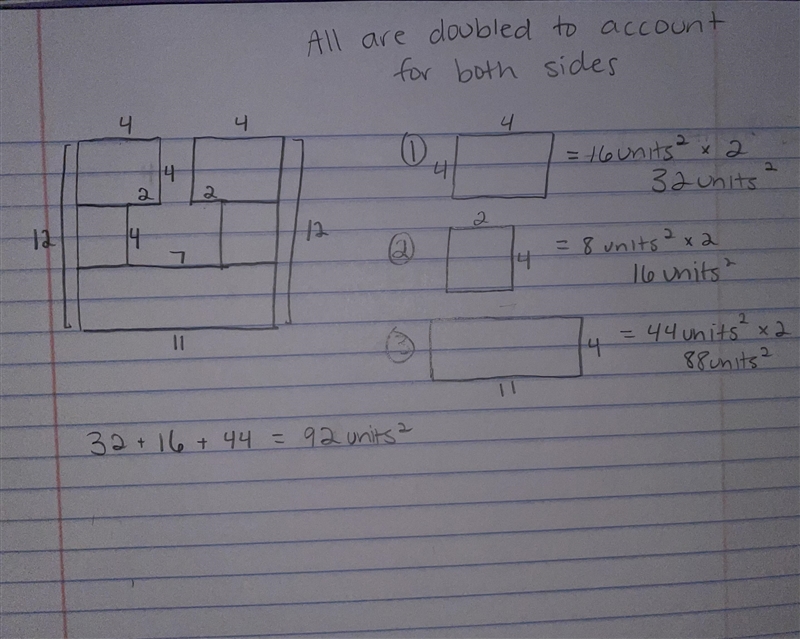 All are doubled to account
for both sides
4 4
4
2 2
12 4 12
7
11
① 4
4 = 16 units² × 2
32 units²
② 2
4 = 8 units² × 2
16 units²
③ 4 = 44 units² × 2
88 units²
11
32 + 16 + 44 = 92 units²